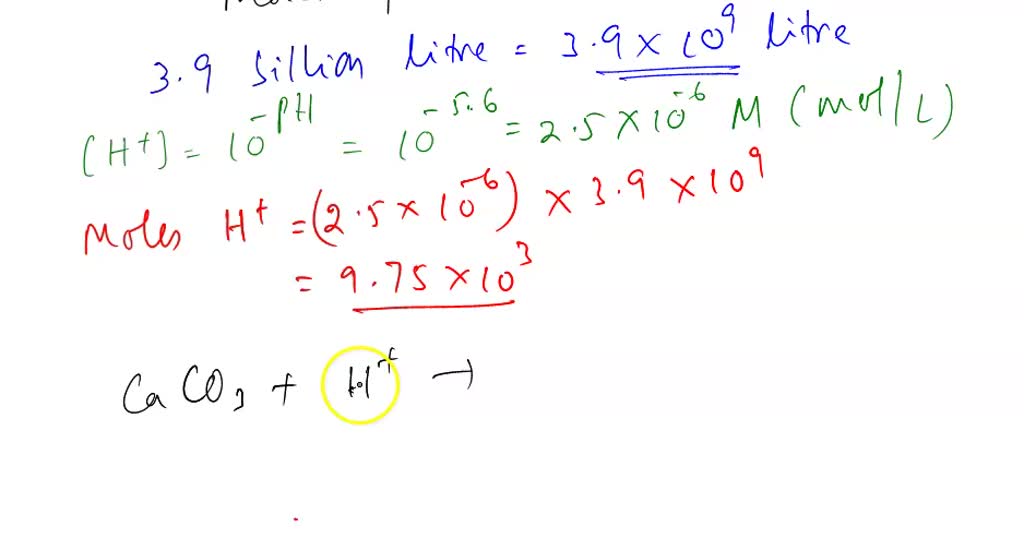 3.9 billion litre = 3.9 × 10⁹ litre
[H⁺] = 10^-PH = 10^-5.6 = 2.5 × 10⁻⁶ M (mol/L)
Moles H⁺ = (2.5 × 10⁻⁶) × 3.9 × 10⁹
= 9.75 × 10³
CaCO₃ + H⁺ →